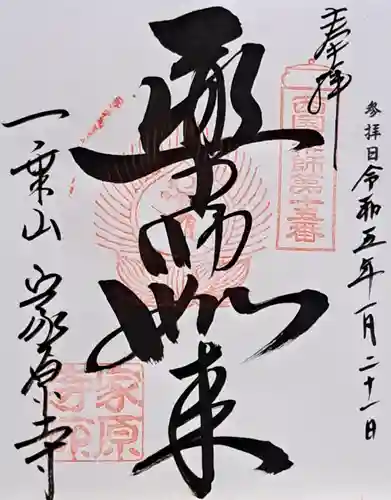 奉拝
参拝日 令和五年一月二十一日
西国薬師第十五番
薬師如来
一乗山 家原寺
家原寺印